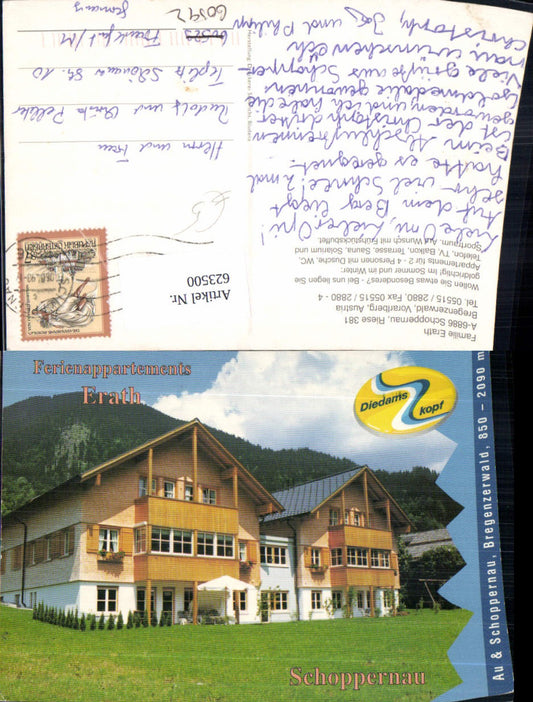 Liebe Omi, lieber Opi!
Auf dem Berg liegt
sehr viel Schnee! 2 mal
hatte es geregnet.
Beim Abschlußrennen
ist der Christoph dritter
geworden und ich habe die
Goldmedalie gewonnen
Viele Grüße aus Schoppernau
wünschen Euch
Christoph, und Philipp
Herrn und Frau
Rudolf und
Teplitz Schönauer Str. 10
Frankfurt/M
60592
Germany
€5
Artikel Nr.
623500
REPUBLIK ÖSTERREICH
Familie Erath
A-6886 Schoppernau, Riese 381
Bregenzerwald, Vorarlberg, Austria
Tel. 05515 / 2880, Fax 05515 / 2880 - 4
Wollen Sie etwas Besonderes? - Bei uns liegen Sie
goldrichtig! Im Sommer und im Winter:
Appartements für 2 - 4 Personen mit Dusche, WC,
Telefon, TV, Balkon, Terrasse, Sauna, Solarium und
Sportraum. Auf Wunsch mit Frühstücksbuffet.
Ferienappartements
Erath
Diedams
kopf
Au & Schoppernau, Bregenzerwald, 850 – 2090 m
Schoppernau